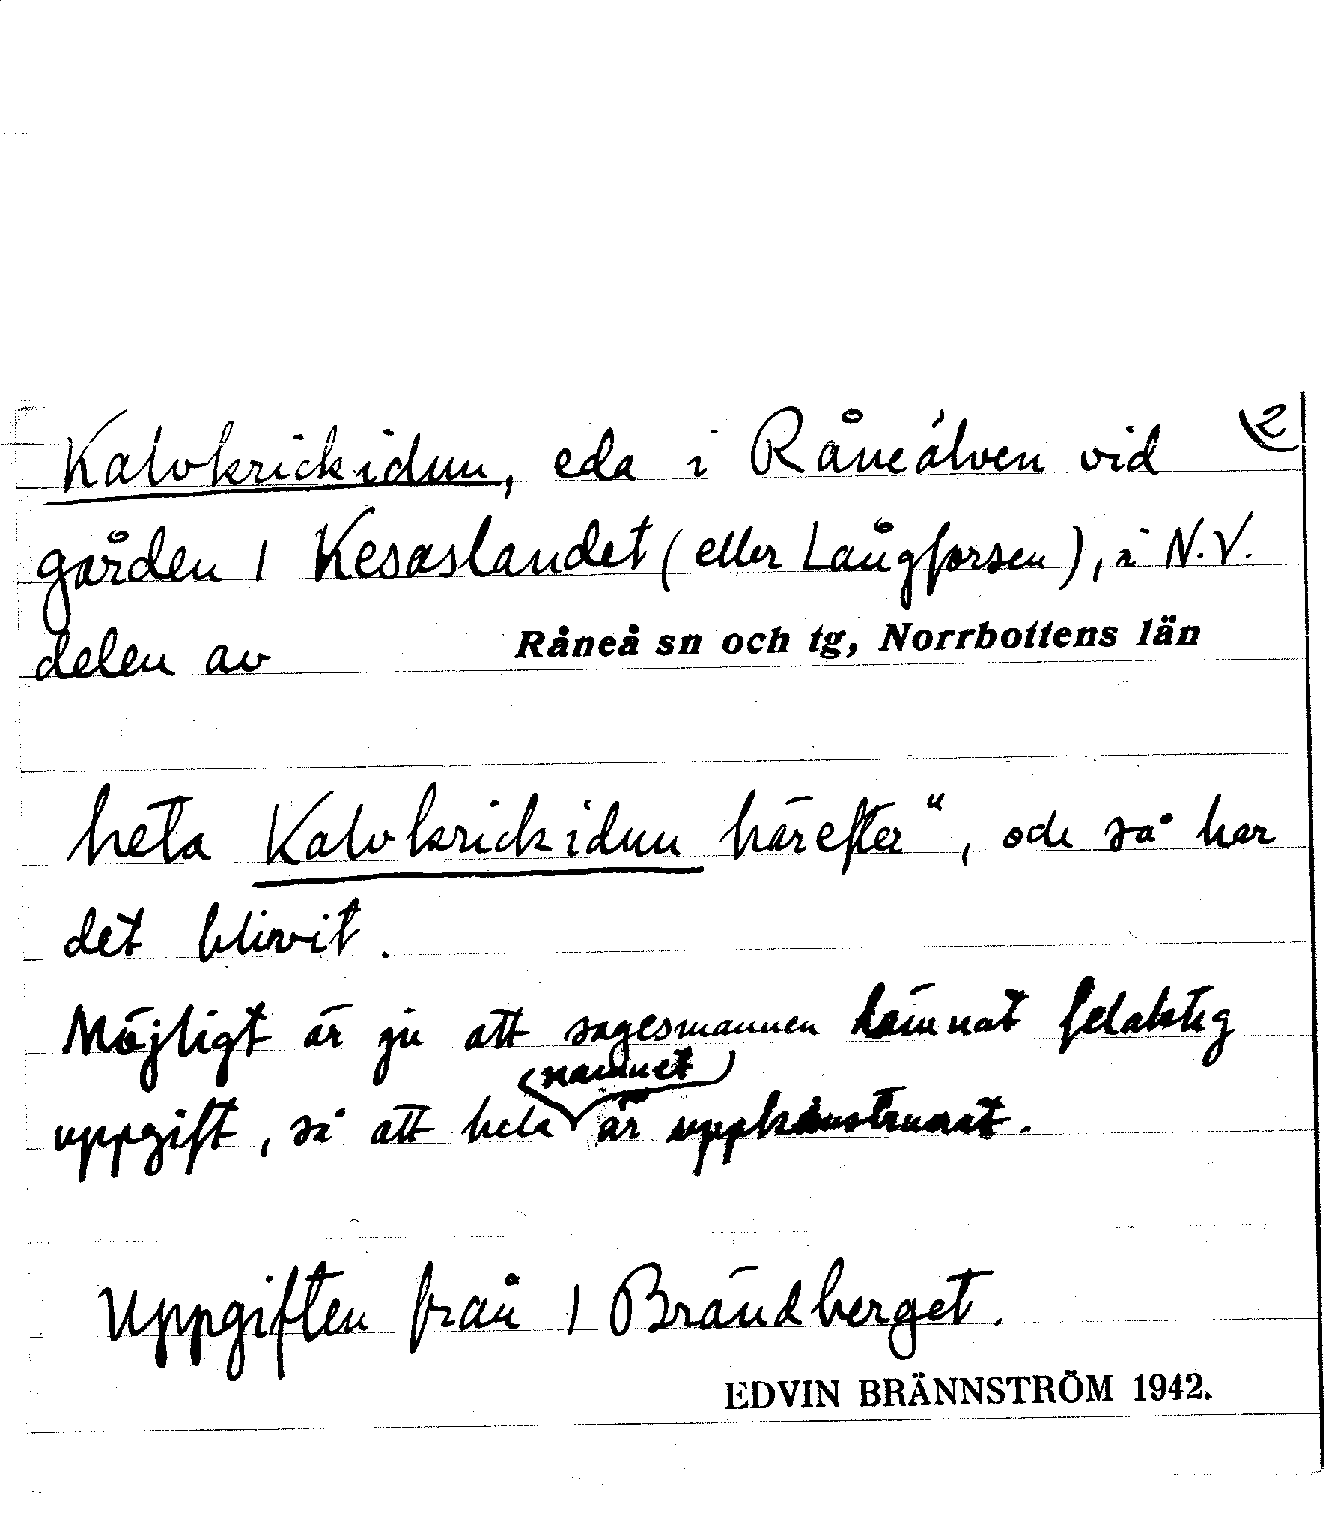 Kalvkrickidun, eda i Råneälven vid 2
gården 1 Kesaslandet (eller Långforsen), i N.V.
delen av Råneå sn och tg, Norrbottens län
heta Kalvkrickidun härefter", och så har
det blivit.
Möjligt är ju att sagesmannen lämnat felaktig
namnet
uppgift, så att hela är uppkonstruerat.
Uppgiften från 1 Brändberget.
EDVIN BRÄNNSTRÖM 1942.